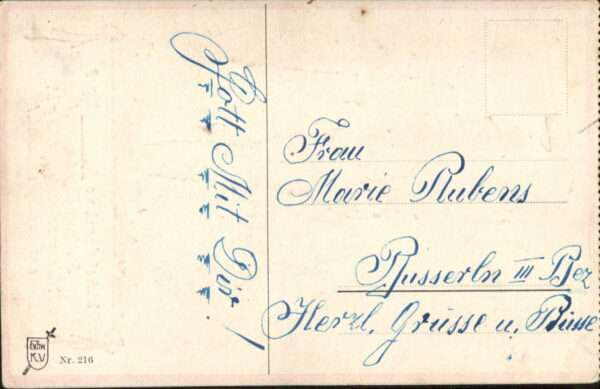 Gott Mit Dir!
Frau
Marie Rubens
Busserln III Bez
Herzl. Grüsse u. Büsse
K.V
Nr. 216